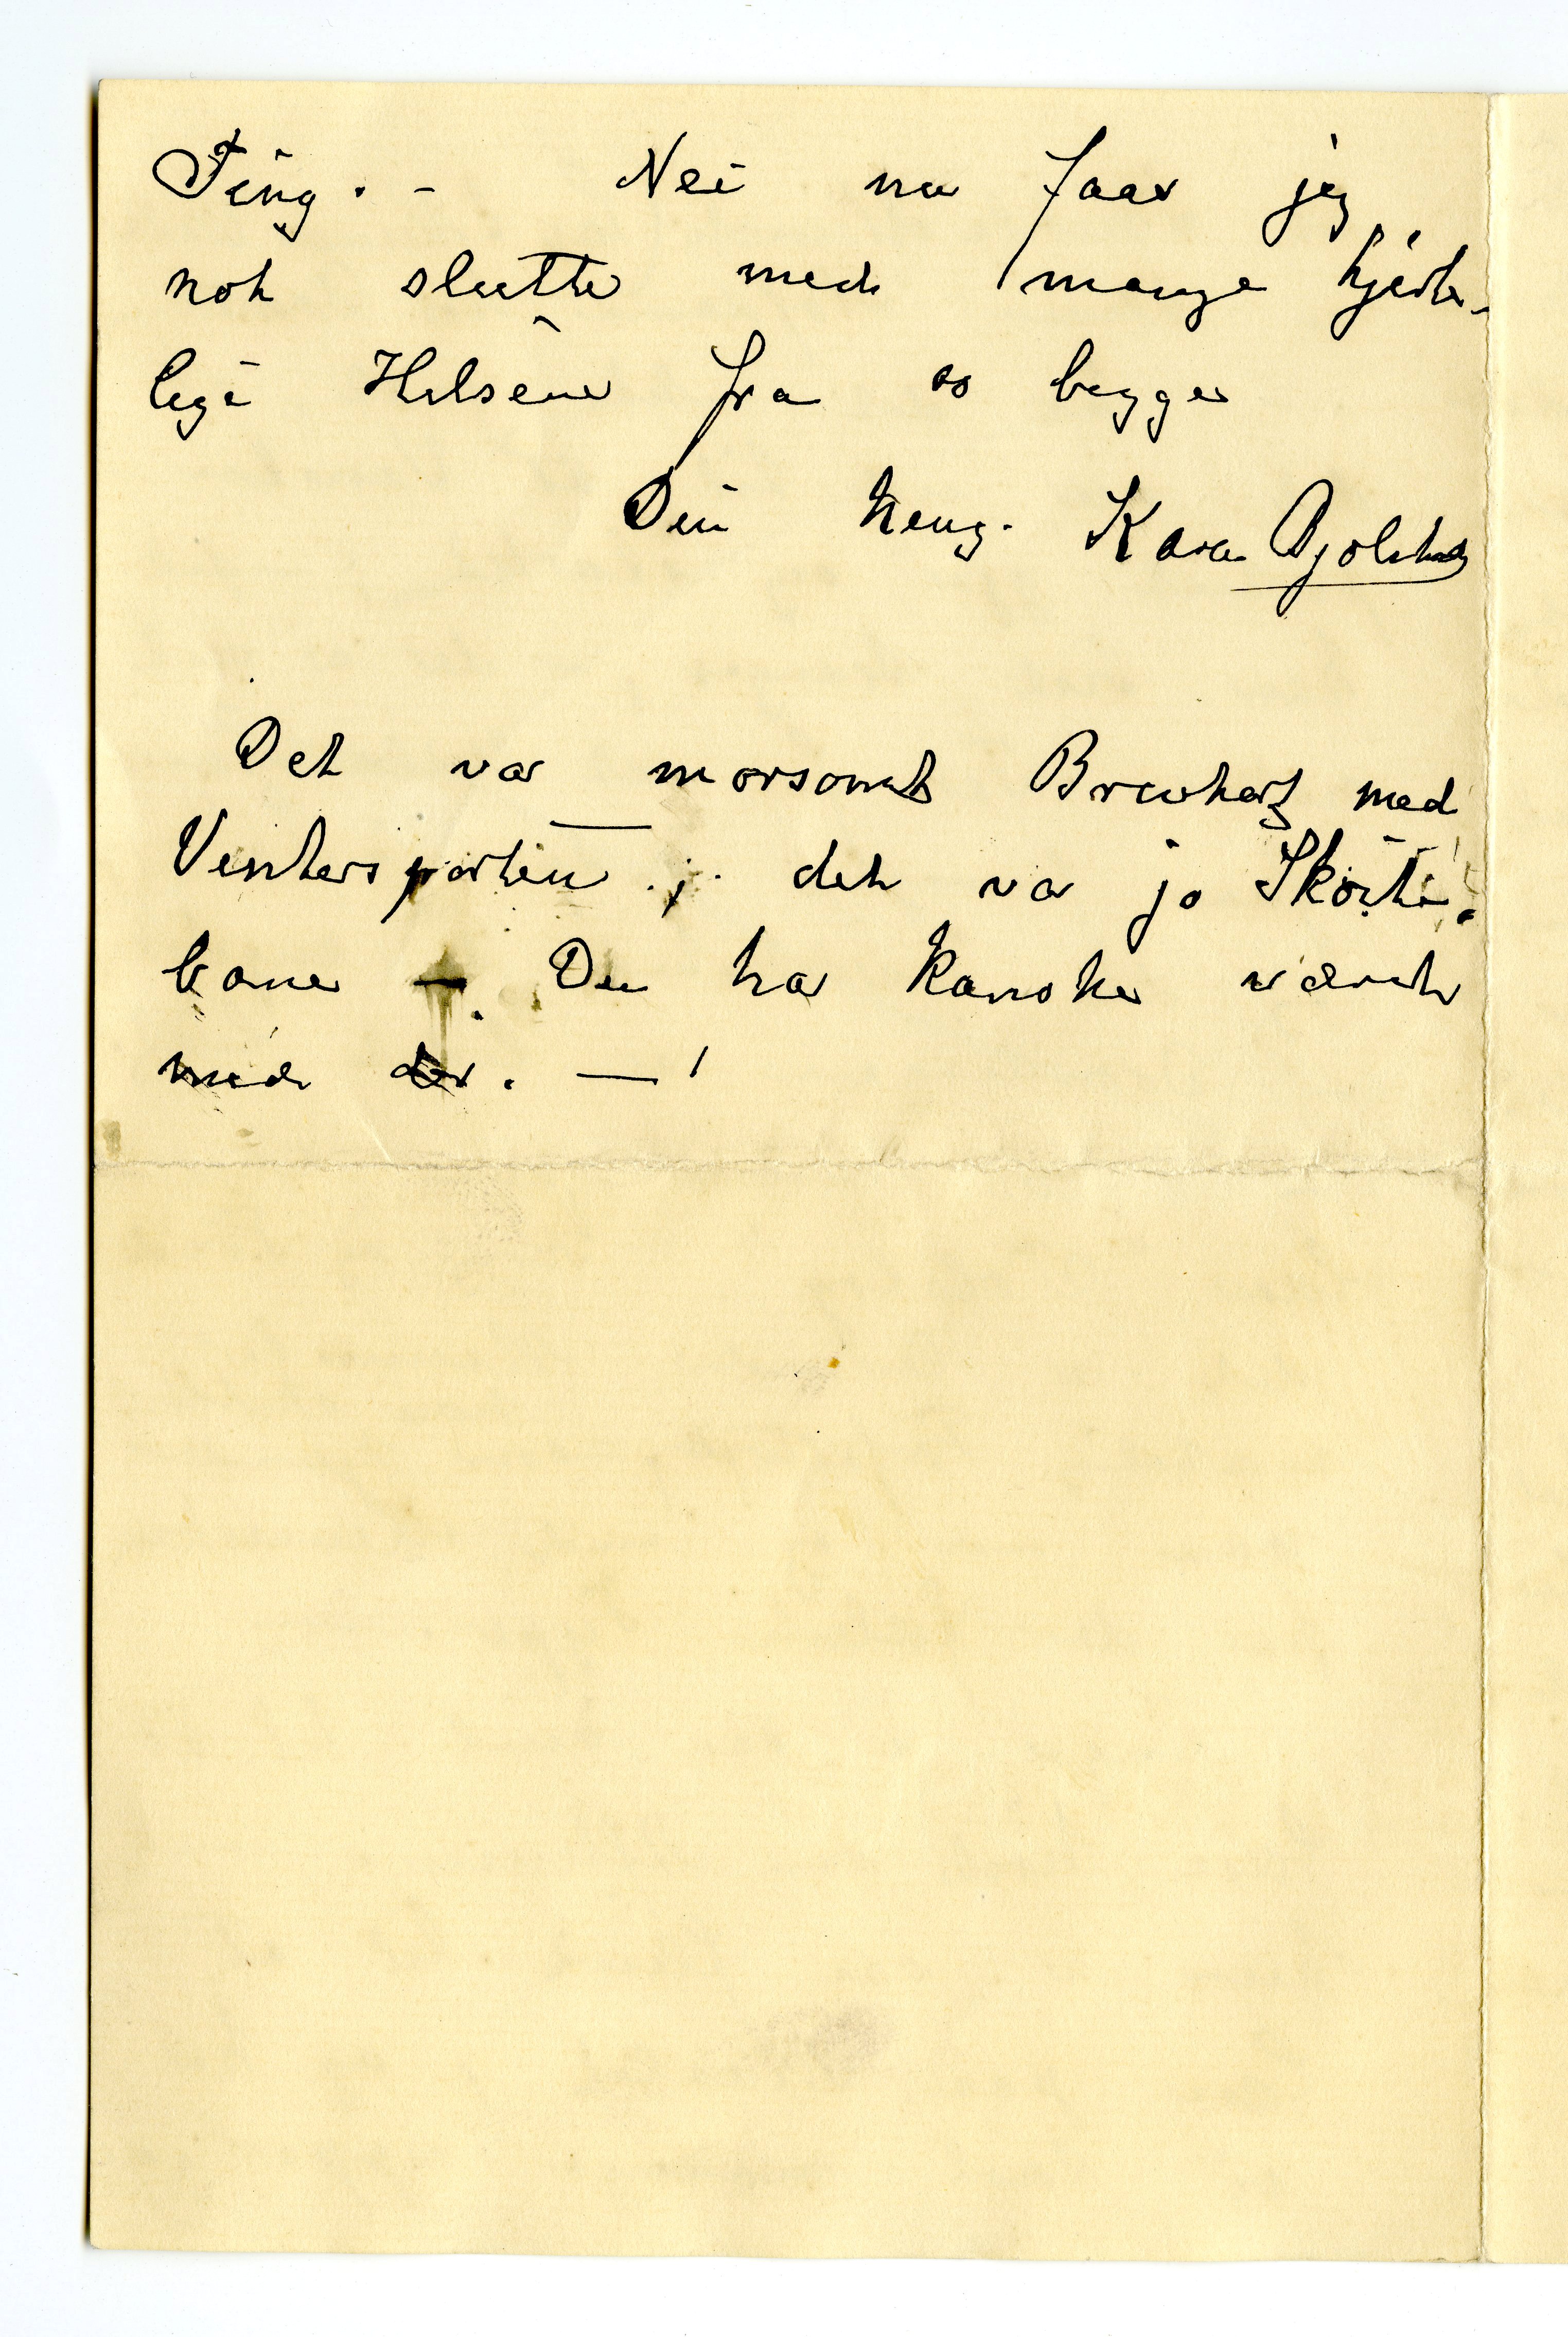 Ting. - Nei nu faar jeg
nok slutte med mange hjerte-
lige Hilsener fra os begge
Din heng. Kara
Det var morsomt Brevkort med
Vintersporten; det var jo Skøite-
bane — Du har kanske været
med der. —